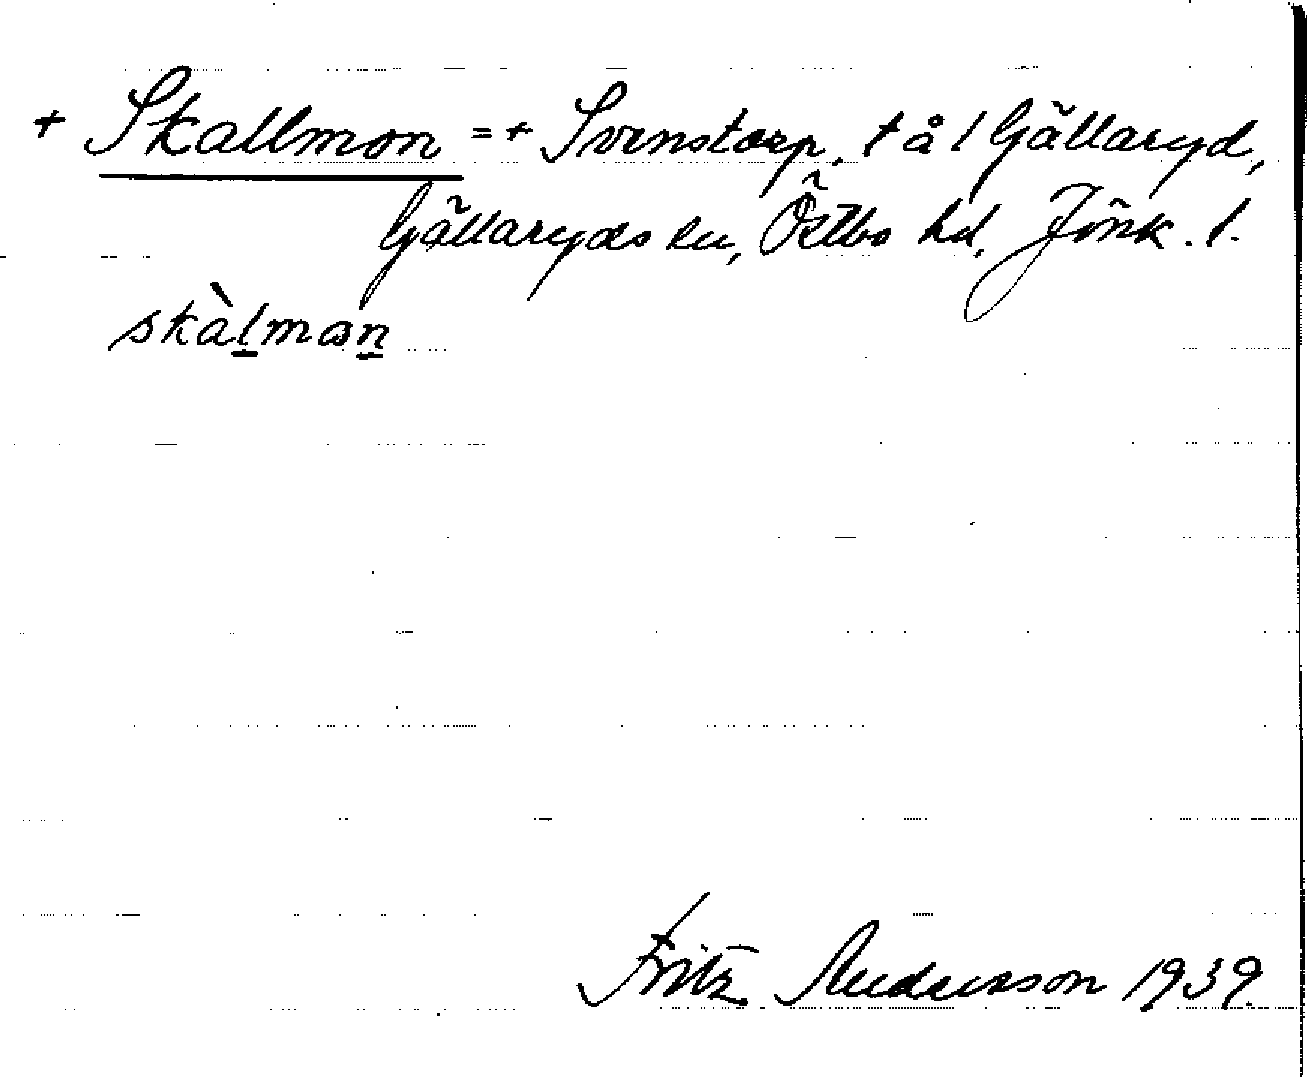 + Skallmon = + Svenstorp, t å 1 Gällaryd,
Gällaryds sn, Östbo hd, Jönk. l.
skàlman
Fritz Andersson 1939.